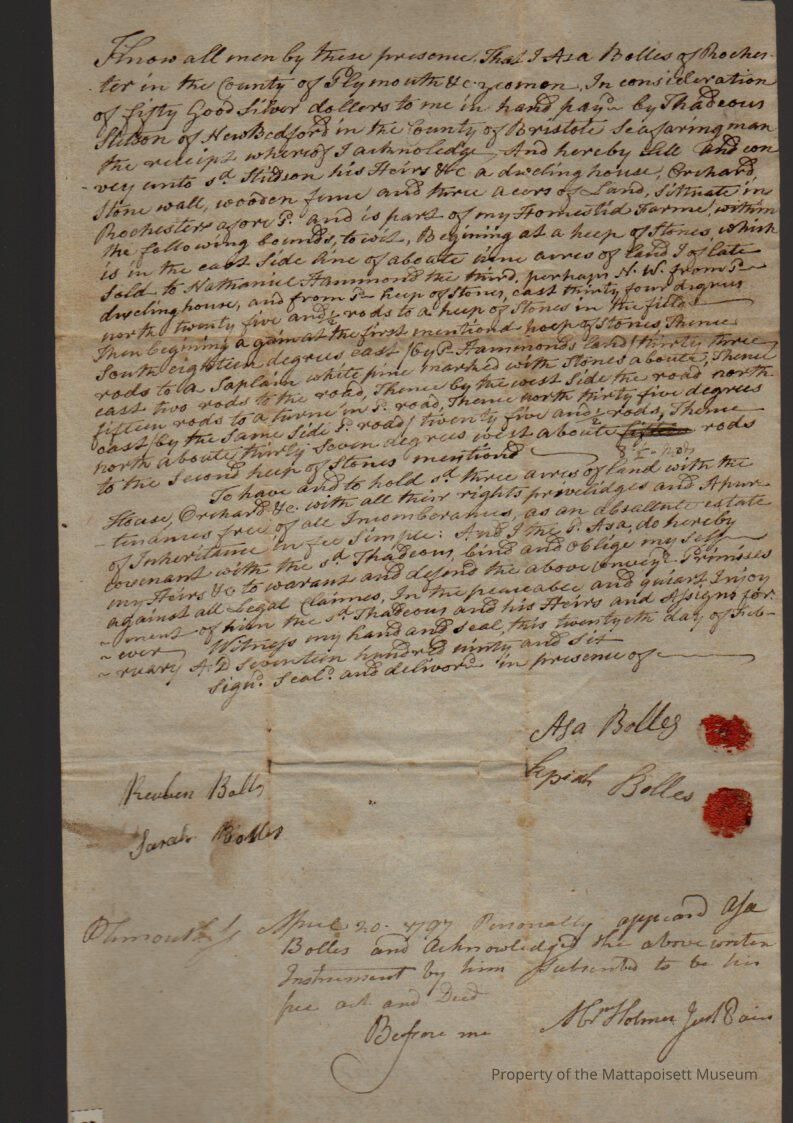 Know all men by these presence, That I Asa Bolles of Roches-
ter in the County of Plymouth &c. yeomon, In consideration
of fifty Good Silver dollers to me in hand pay.d by Thadeous
Stetson of New Bedford in the County of Bristole Seafaring man
the receipt whereof I acknoledg, And hereby Sell and con
vey unto s.d Studson his Heirs &c a dweling house, Orchard,
Stone wall, wooden fence and three acers of Land, Sittuate in
Rochester afore s.d and is part of my Homestid Farme, within
the following bounds, to wit, Begining at a heep of Stones which
is in the east Side line of aboute nine acres of land I of late
Sold to Nathaniel Hammond the third, perhaps N. W. from s.d
dweling house, and from s.d heep of Stones, east thirty four degrus
north twenty five and ½ rods to a heep of Stones in the field
Then begining a gain at the first mentiond heep of Stones, Thence
South eighteen degrees east (by s.d Hammonds land) thirty three
rods to a Saplain white pine marked with Stones aboute, Thence
east two rods to the road, Thence by the west Side the road north
fifteen rods to a turne in s.d road, Thence north thirty five degrees
east (by the Same Side s.d road) twenty five and ½ rods, Thence
north aboute thirty Seven degrees west aboute fifteen rods
to the Second heep of Stones mentiond
To have and to hold s.d three acres of land with the
House, Orchard &c. with all their rights priveliedges and Apur-
tenances free of all Incomberances, as an absallute estate
of Inheritance in fee Simple: And I the s.d Asa, do hereby
covenant with the s.d Thadeous, bind and oblige my Self
my Heirs &c to warant and defend the above convey.d Primises
against all Legal Claimes, In the peaceabee and quiart Injoy
ment of him the s.d Thadeous and his Heirs and Assigns for
ever Witness my hand and seal, this twentyeth day of Feb-
ruary A.D Seventeen hundred ninty and six
Sign.d Seal.d and deliver.d in presence of
Asa Bolles
Bolles
Reuben Bolls
Sarah Bolles
Plimouth Ss April 20. 1797 Personally appeard Asa
Bolles and Acknowledged the above writen
Instrument by him Subscribed to be his
free act and Deed
Before me Abr.m Holmes Just Pacis
Property of the Mattapoisett Museum